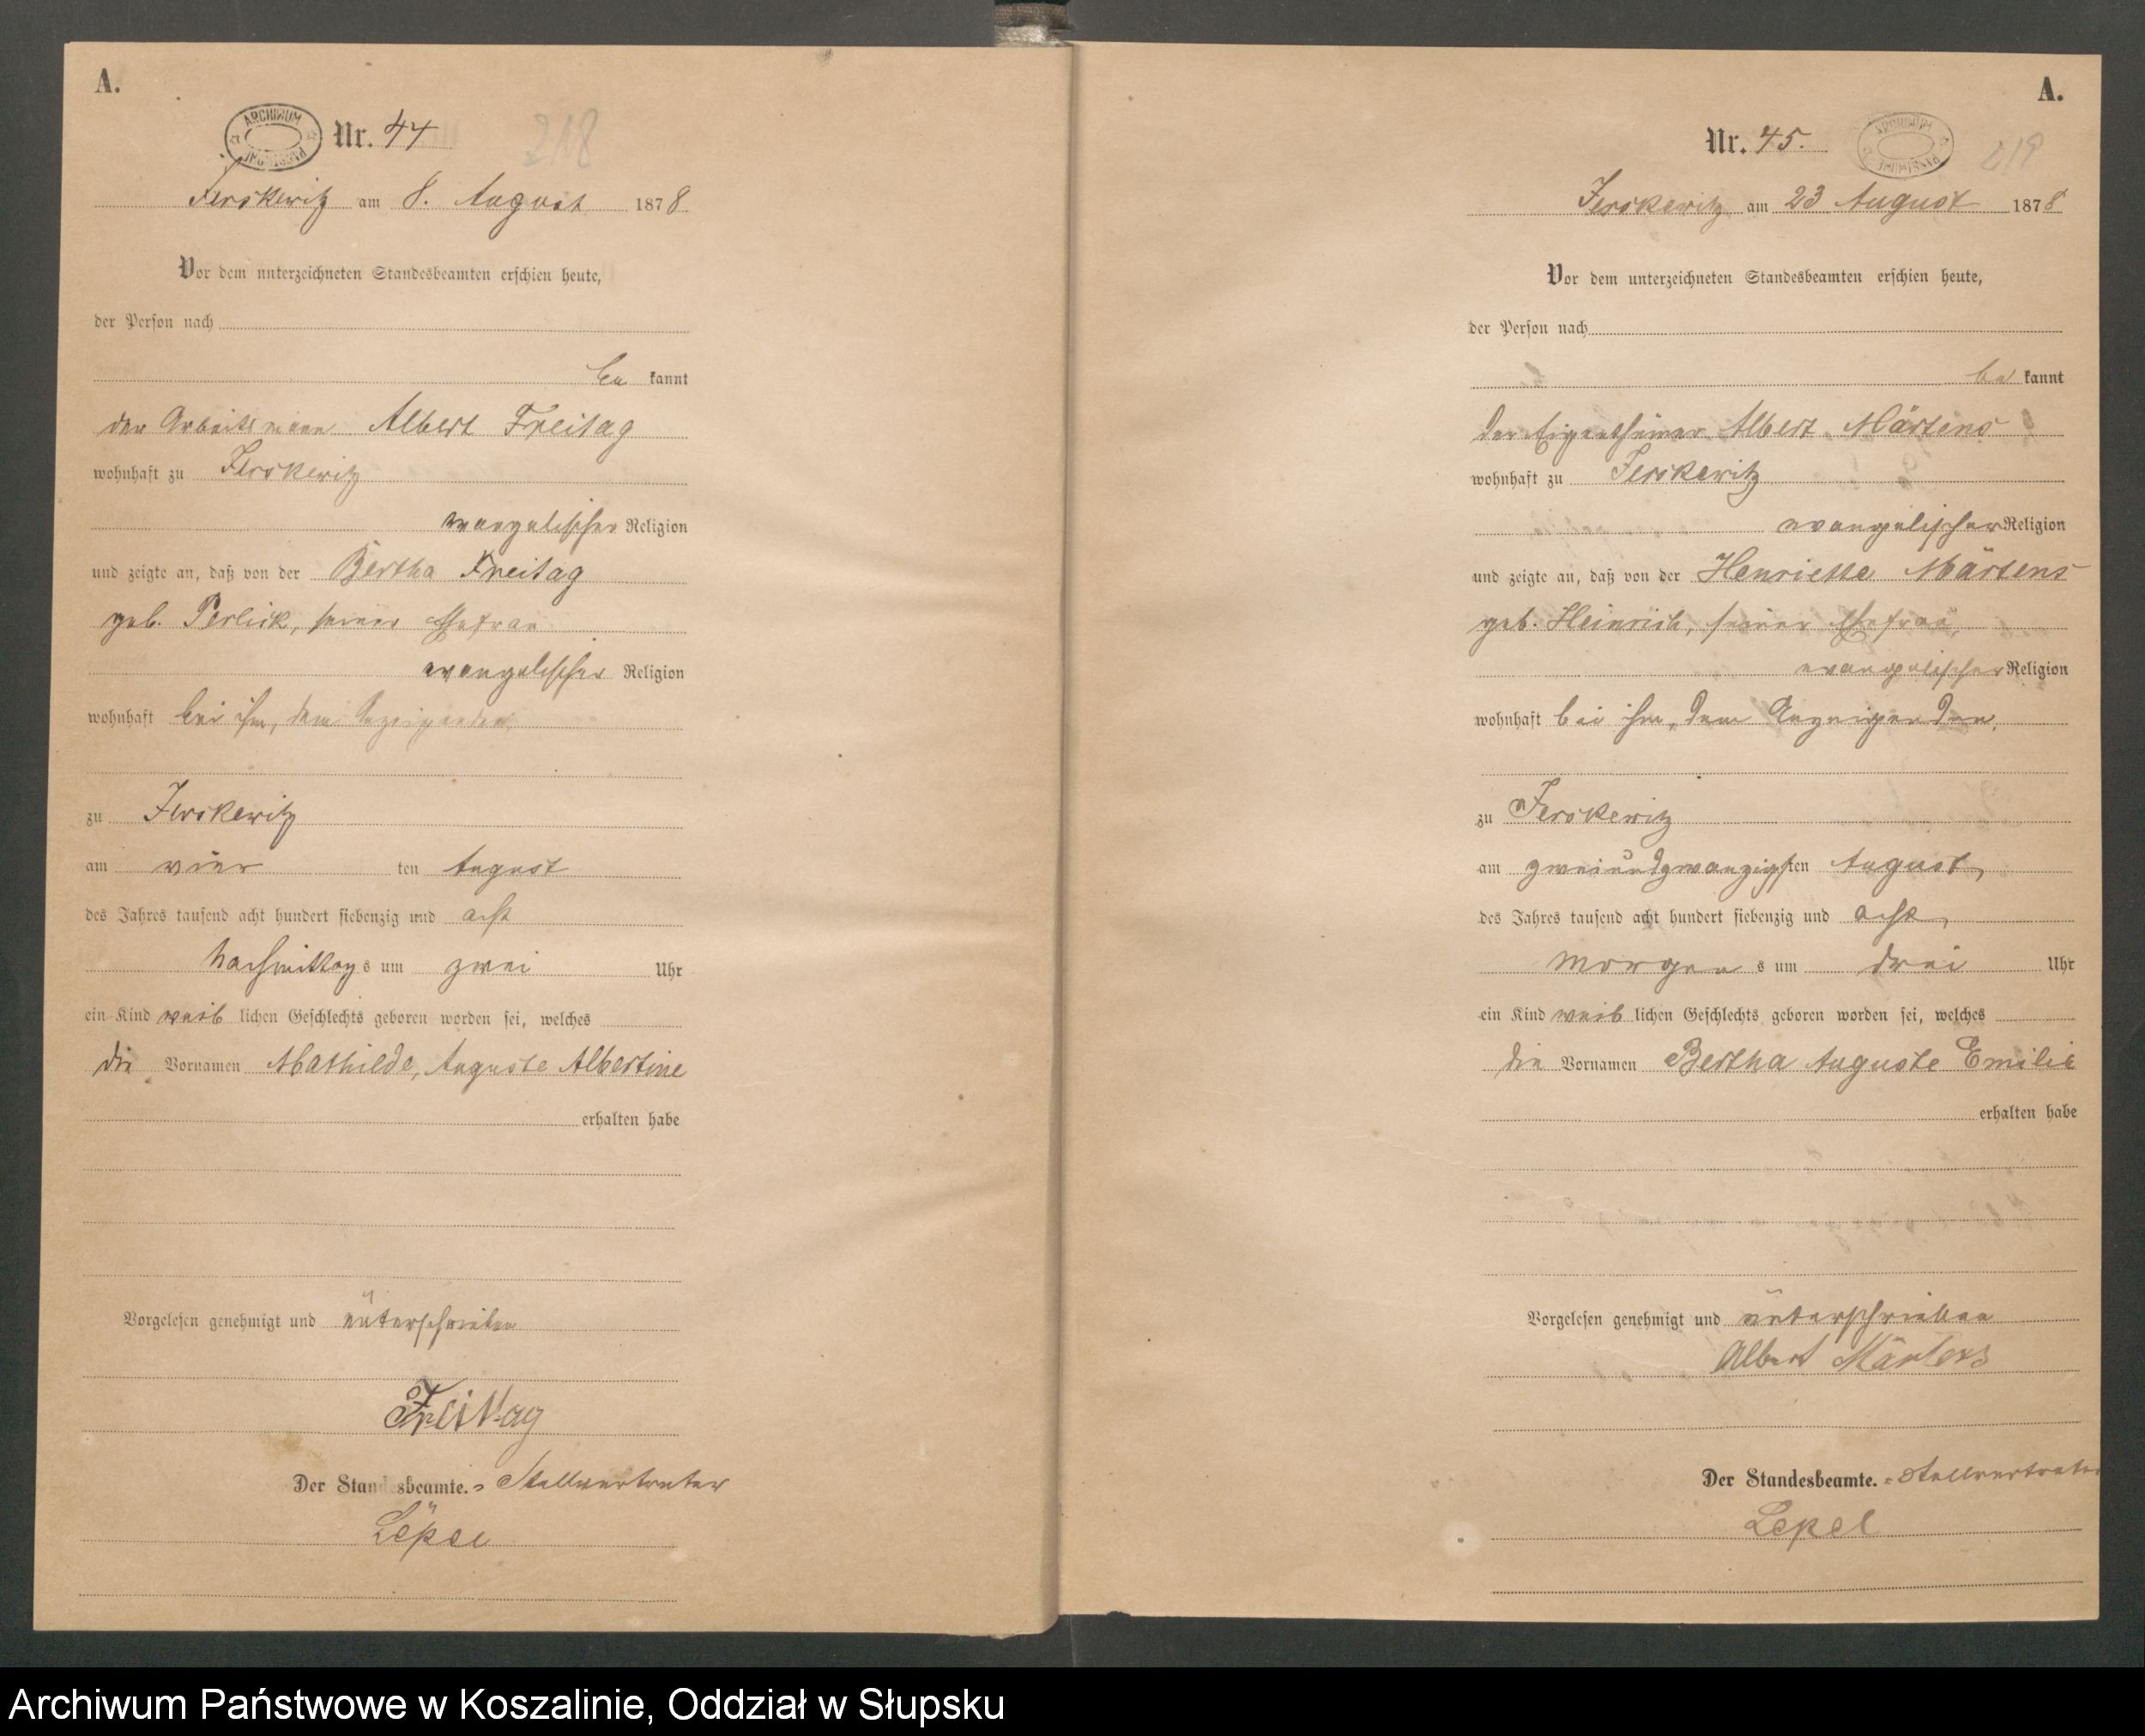 A.
ARCHIWUM PAŃSTWOWE
Nr. 44
218
Jerskewitz am 8. August 1878
Vor dem unterzeichneten Standesbeamten erschien heute,
der Person nach
be kannt
der Arbeitsmann Albert Freitag
wohnhaft zu Jerskewitz
evangelischer Religion
und zeigte an, daß von der Bertha Freitag
geb. Perlick, seiner Ehefrau
evangelischer Religion
wohnhaft bei ihm, dem Anzeigenden,
zu Jerskewitz
am vier ten August
des Jahres tausend acht hundert siebenzig und acht
Nachmittag s um zwei Uhr
ein Kind weib lichen Geschlechts geboren worden sei, welches
die Vornamen Mathilde, Auguste Albertine
erhalten habe
Vorgelesen genehmigt und unterschrieben
Freitag
Der Standesbeamte. = Stellvertreter
Lepel
A.
Nr. 45.
ARCHIWUM PAŃSTWOWE
219
Jerskewitz am 23 August 1878
Vor dem unterzeichneten Standesbeamten erschien heute,
der Person nach
be kannt
der Eigenthümer Albert Märtens
wohnhaft zu Jerskewitz
evangelischer Religion
und zeigte an, daß von der Henriette Märtens
geb. Heinrich, seiner Ehefrau,
evangelischer Religion
wohnhaft bei ihm, dem Anzeigenden,
zu Jerskewitz
am zweiundzwanzigsten August,
des Jahres tausend acht hundert siebenzig und acht,
Morgen s um drei Uhr
ein Kind weib lichen Geschlechts geboren worden sei, welches
die Vornamen Bertha Auguste Emilie
erhalten habe
Vorgelesen genehmigt und unterschrieben
Albert Märtens
Der Standesbeamte. = Stellvertreter
Lepel
Archiwum Państwowe w Koszalinie, Oddział w Słupsku